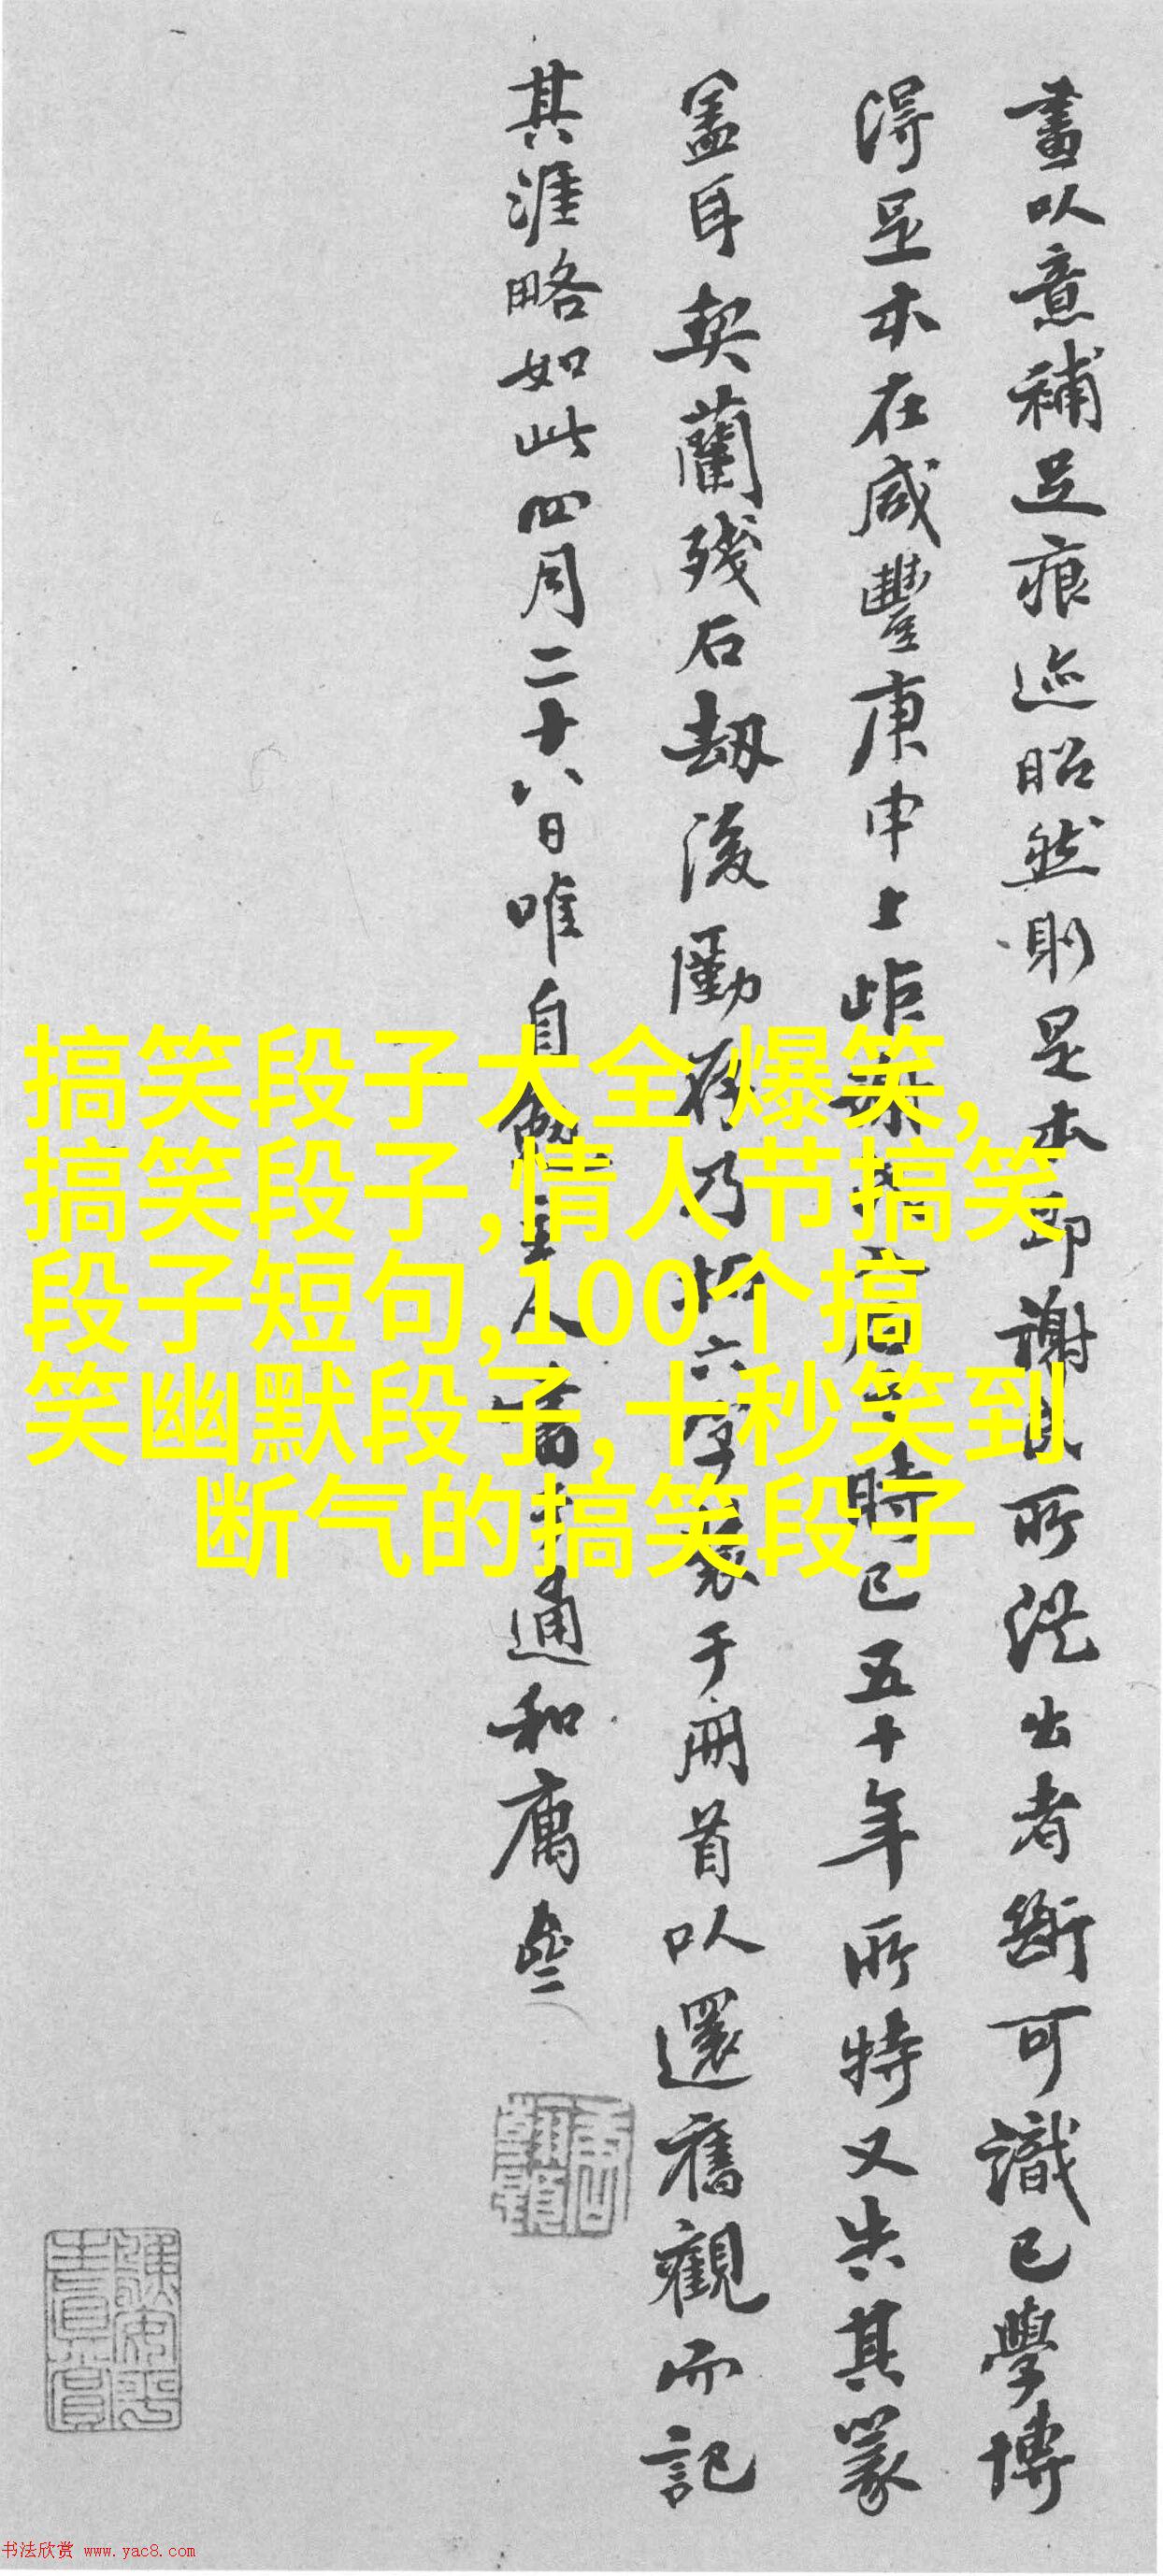 畫以意補足痕迹昭然則是本即謝氏所從出者斷可識已學博
得足本在咸豐庚申上距時已五十年所特又失其篆
蓋耳契蘭殘石劫後勵存乃拓六字裝于冊首以還舊觀而記
其涯略如此四月二十八日唯自人通和
搞笑段子大全 爆笑,
搞笑段子,情人节搞笑
段子短句,100个搞
笑幽默段子,十秒笑到
断气的搞笑段子
书法欣赏 www.yac8.com